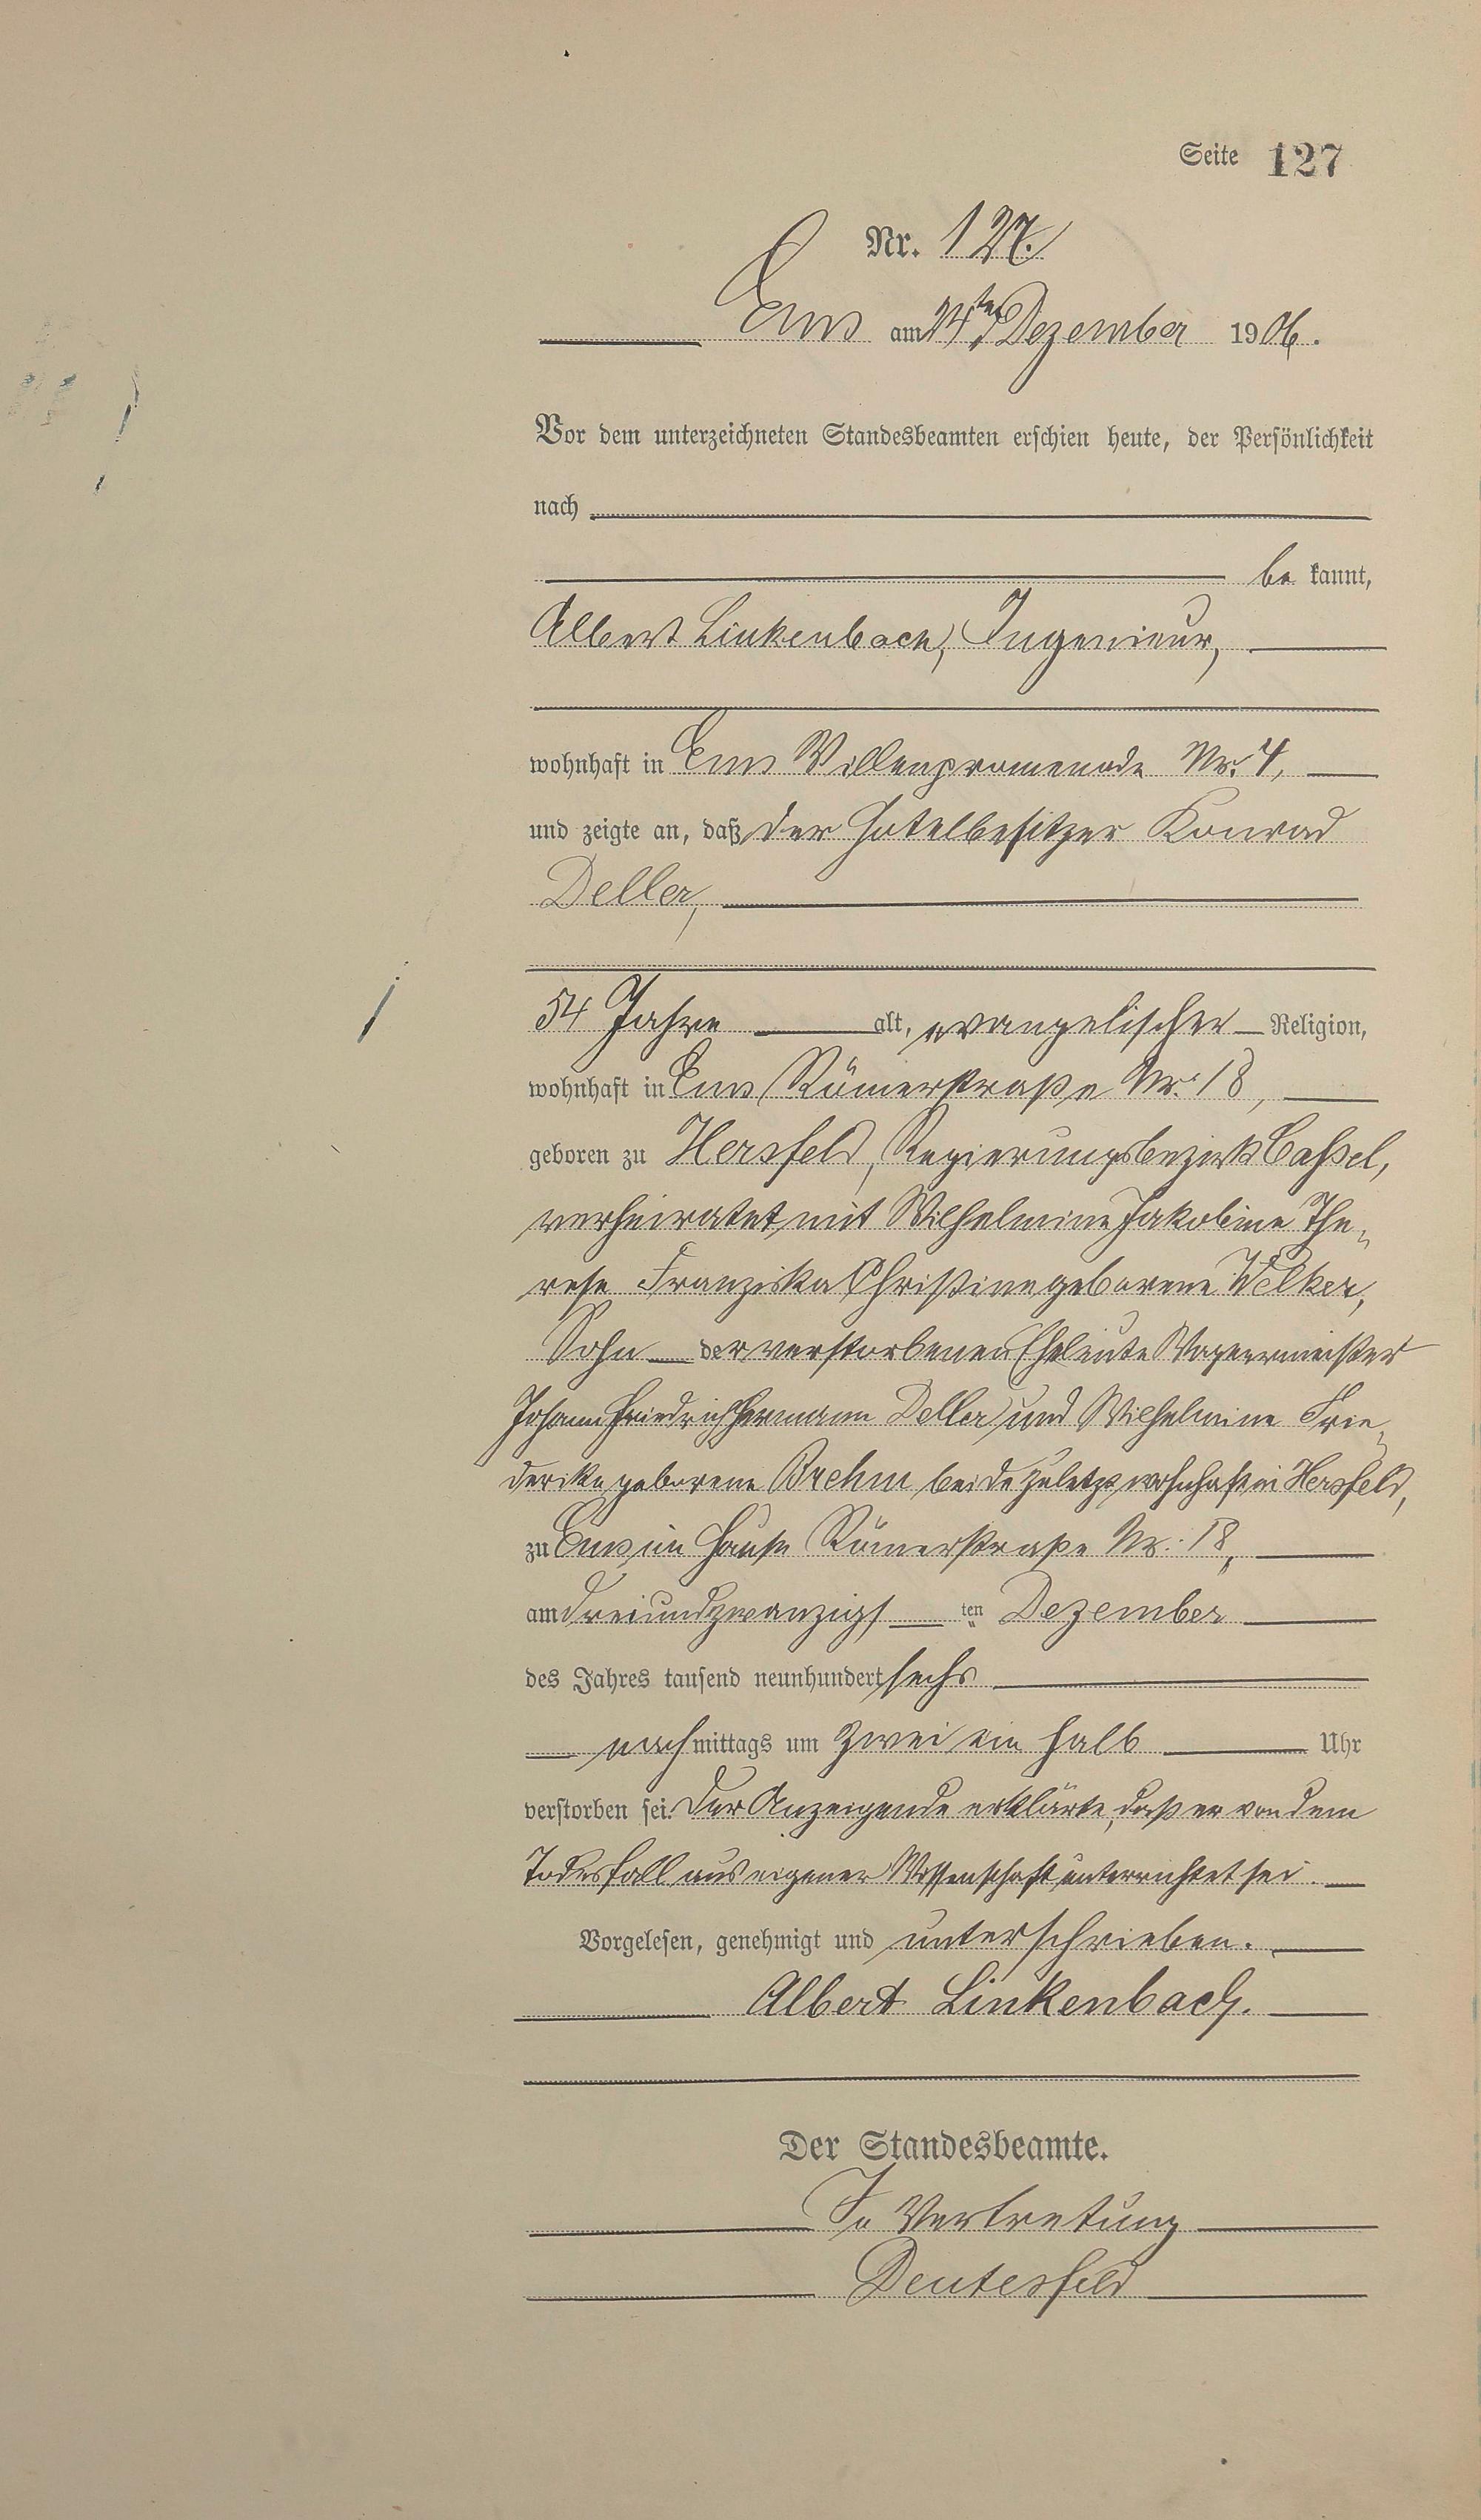 Seite 127
Nr. 127.
Ems am 24ten Dezember 1906.
Vor dem unterzeichneten Standesbeamten erschien heute, der Persönlichkeit
nach
be kannt,
Albert Linkenbach, Ingenieur,
wohnhaft in Ems Villenpromenade Nr. 4,
und zeigte an, daß der Hotelbesitzer Konrad
Deller,
54 Jahre alt, evangelischer Religion,
wohnhaft in Ems Römerstraße Nr. 18,
geboren zu Hersfeld, Regierungsbezirk Cassel,
verheiratet mit Wilhelmine Jakobine The-
rese Franziska Christine geborene Velker,
Sohn der verstorbenen Eheleute
Johann Friedrich Hermann Deller und Wilhelmine Frie-
derike geborene Brehm beide zuletzt wohnhaft in Hersfeld,
zu Ems im Hause Römerstraße Nr. 18,
am dreiundzwanzigs ten Dezember
des Jahres tausend neunhundert sechs
nach mittags um zwei ein halb Uhr
verstorben sei. Der Anzeigende erklärte, daß er von dem
Todesfall aus eigener Wissenschaft unterrichtet sei.
Vorgelesen, genehmigt und unterschrieben.
Albert Linkenbach.
Der Standesbeamte.
In Vertretung
Deutesfeld